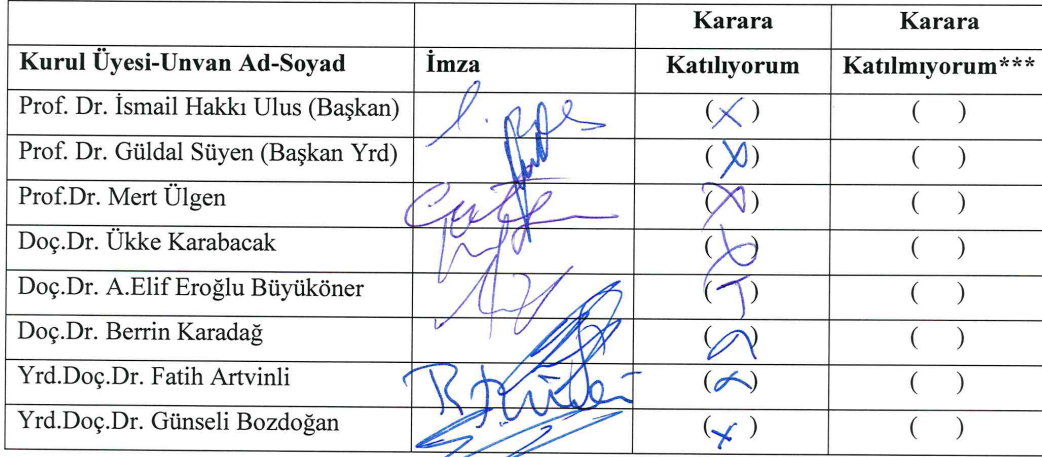 Karara Karara
Kurul Üyesi-Unvan Ad-Soyad İmza Katılıyorum Katılmıyorum***
Prof. Dr. İsmail Hakkı Ulus (Başkan) (X) ( )
Prof. Dr. Güldal Süyen (Başkan Yrd) (X) ( )
Prof.Dr. Mert Ülgen (X) ( )
Doç.Dr. Ükke Karabacak ( ) ( )
Doç.Dr. A.Elif Eroğlu Büyüköner ( ) ( )
Doç.Dr. Berrin Karadağ ( ) ( )
Yrd.Doç.Dr. Fatih Artvinli ( ) ( )
Yrd.Doç.Dr. Günseli Bozdoğan (x) ( )